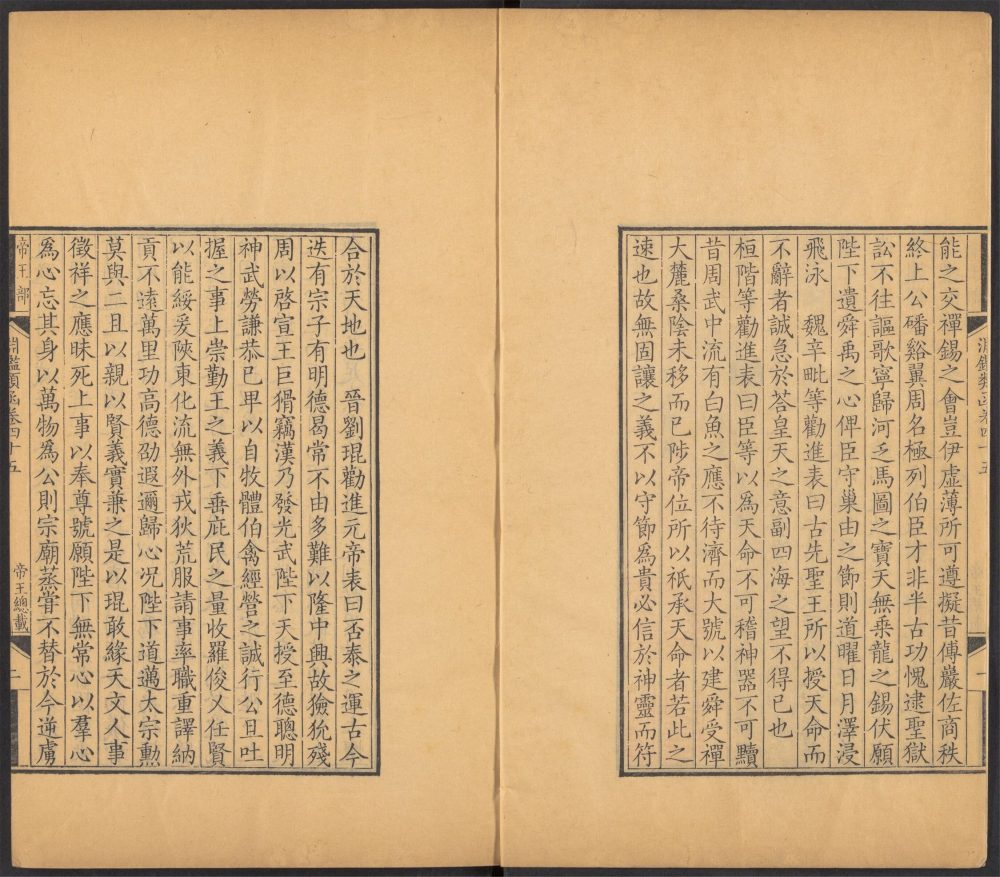 淵鑑類函卷四十五
一
能之交禪錫之會豈伊虛薄所可遵擬昔傅巖佐商秩
終上公磻谿翼周名極列伯臣才非半古功愧逮聖獄
訟不往謳歌寧歸河之馬圖之寶天無乗龍之錫伏願
陛下遺舜禹之心俾臣守巢由之節則道曜日月澤浸
飛泳　魏辛毗等勸進表曰古先聖王所以授天命而
不辭者誠急於荅皇天之意副四海之望不得已也
桓階等勸進表曰臣等以為天命不可稽神器不可黷
昔周武中流有白魚之應不待濟而大號以建舜受禪
大麓桑陰未移而已陟帝位所以祗承天命者若此之
速也故無固讓之義不以守節為貴必信於神靈而符
合於天地也　晉劉琨勸進元帝表曰否泰之運古今
迭有宗子有明德曷常不由多難以隆中興故獫狁殘
周以啓宣王巨猾竊漢乃發光武陛下天授至德聰明
神武勞謙恭已卑以自牧體伯禽經營之誠行公旦吐
握之事上崇勤王之義下垂庇民之量收羅俊乂任賢
以能綏爰陝東化流無外戎狄荒服請事率職重譯納
貢不遠萬里功高德劭遐邇歸心況陛下道邁太宗勲
莫與二且以親以賢義實兼之是以琨敢緣天文人事
徵祥之應昧死上事以奉尊號願陛下無常心以羣心
爲心忘其身以萬物爲公則宗廟蒸嘗不替於今逆虜
帝王部
淵鑑類函卷四十五
帝王總載
二